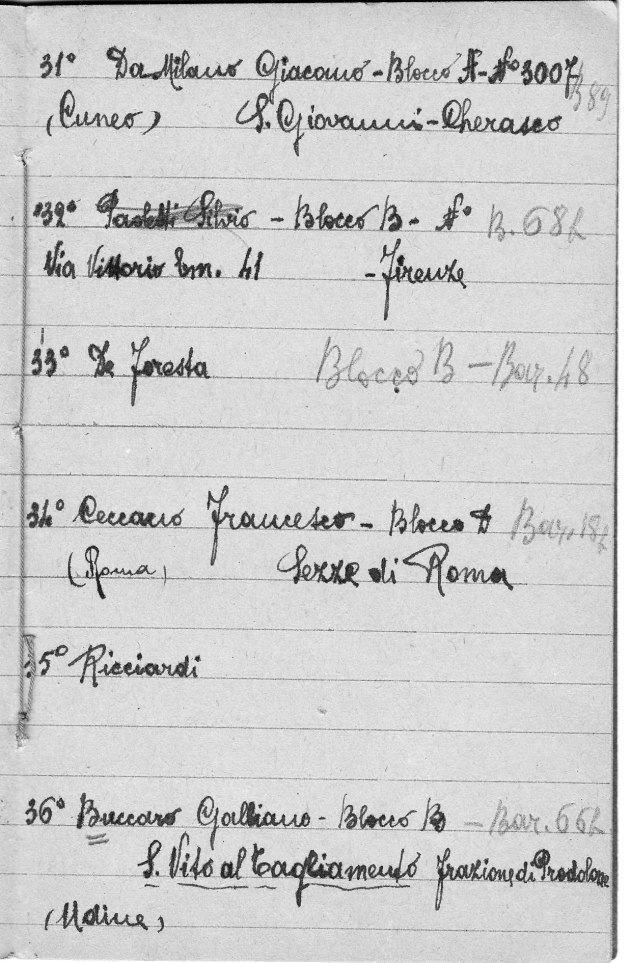 31° Da Milano Giacomo - Blocco A - N° 3007
B89
(Cuneo) S. Giovanni - Cherasco
32° Paoletti Silvio - Blocco B - N° B. 682
Via Vittorio Em. 41 - Firenze
33° De Foresta Blocco B - Bar. 48
34° Ceccano Francesco - Blocco D Bar. 182
(Roma) Sezze di Roma
35° Ricciardi
36° Buccaro Galliano - Blocco B - Bar. 662
S. Vito al Tagliamento frazione di Prodolone
(Udine)